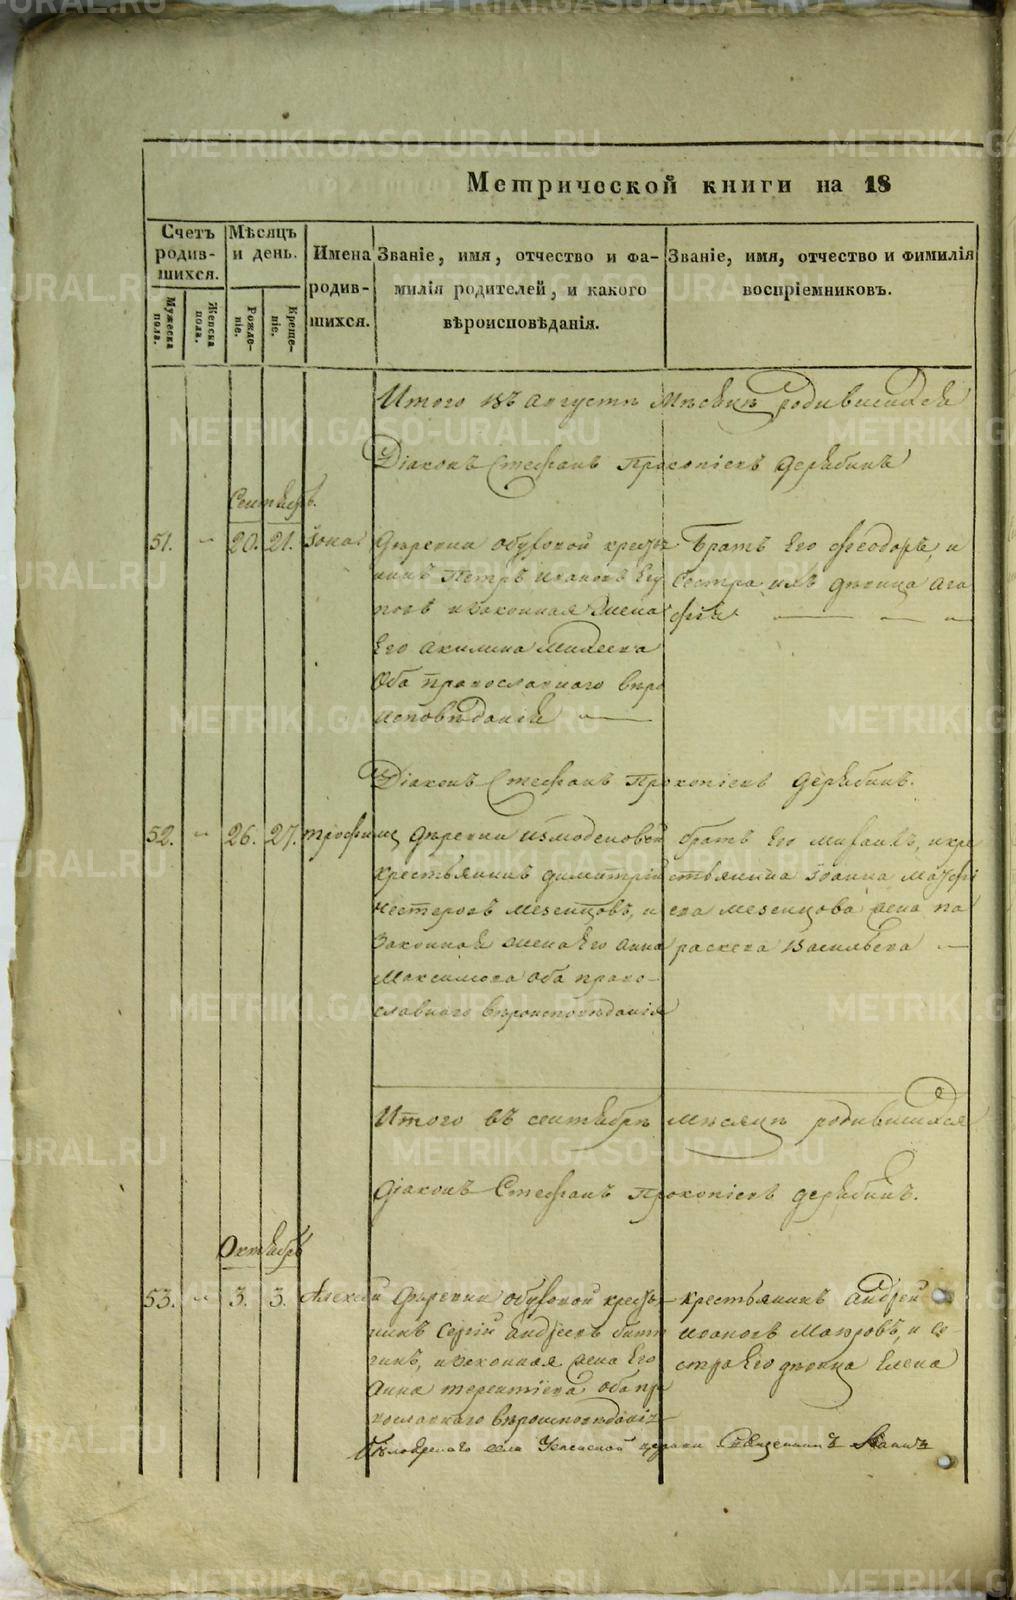 Метрической книги на 18
Счетъ родив-шихся.
Мѣсяцъ и день.
Имена родив-шихся.
Званіе, имя, отчество и фа-милія родителей, и какого вѣроисповѣданія.
Званіе, имя, отчество и фимилія воспріемниковъ.
Мужеска пола.
Женска пола.
Рожде-ніе.
Креще-ніе.
Итого въ августѣ мѣсяцѣ родившихся
Діаконъ Стефанъ Прокопіевъ Дерябинъ
Сентябрь.
51. 20. 21. Іона
Деревни Обуховой кресть
нинъ Петръ Ивановъ
и законная жена
Его Акилина Михеева
Оба православнаго вѣро
исповѣданія
Братъ Его Феодоръ, и
Сестра ихъ дѣвица Ага
фія
Діаконъ Стефанъ Прокопіевъ Дерябинъ.
52. 26. 27. Трофимъ
деревни
крестьянинъ Димитрій
Нестеровъ Мезенцовъ, и
Законная жена Его Анна
Максимова оба право-
славнаго вѣроисповѣданія
братъ Его Михаилъ, и кре
стьянина Іоанна
ева Мезенцова жена Па
раскева Васильева
Итого въ сентябрѣ мѣсяцѣ родившихся
Діаконъ Стефанъ Прокопіевъ Дерябинъ.
Октябрь
53. 3. 3. Алексій
Деревни Обуховой кресть-
нинъ Сергій Андреевъ
и законная жена Его
Анна Терентіева оба пр
вославнаго вѣроисповѣданія
крестьянинъ Андрей
Ивановъ Мазовъ, и се-
стра Его дѣвица Елена
села Успенской церкви Священникъ
METRIKI.GASO-URAL.RU